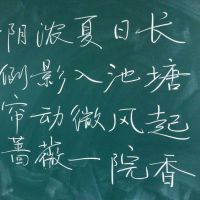 阴浓夏日长
倒影入池塘
帘动微风起
蔷薇一院香